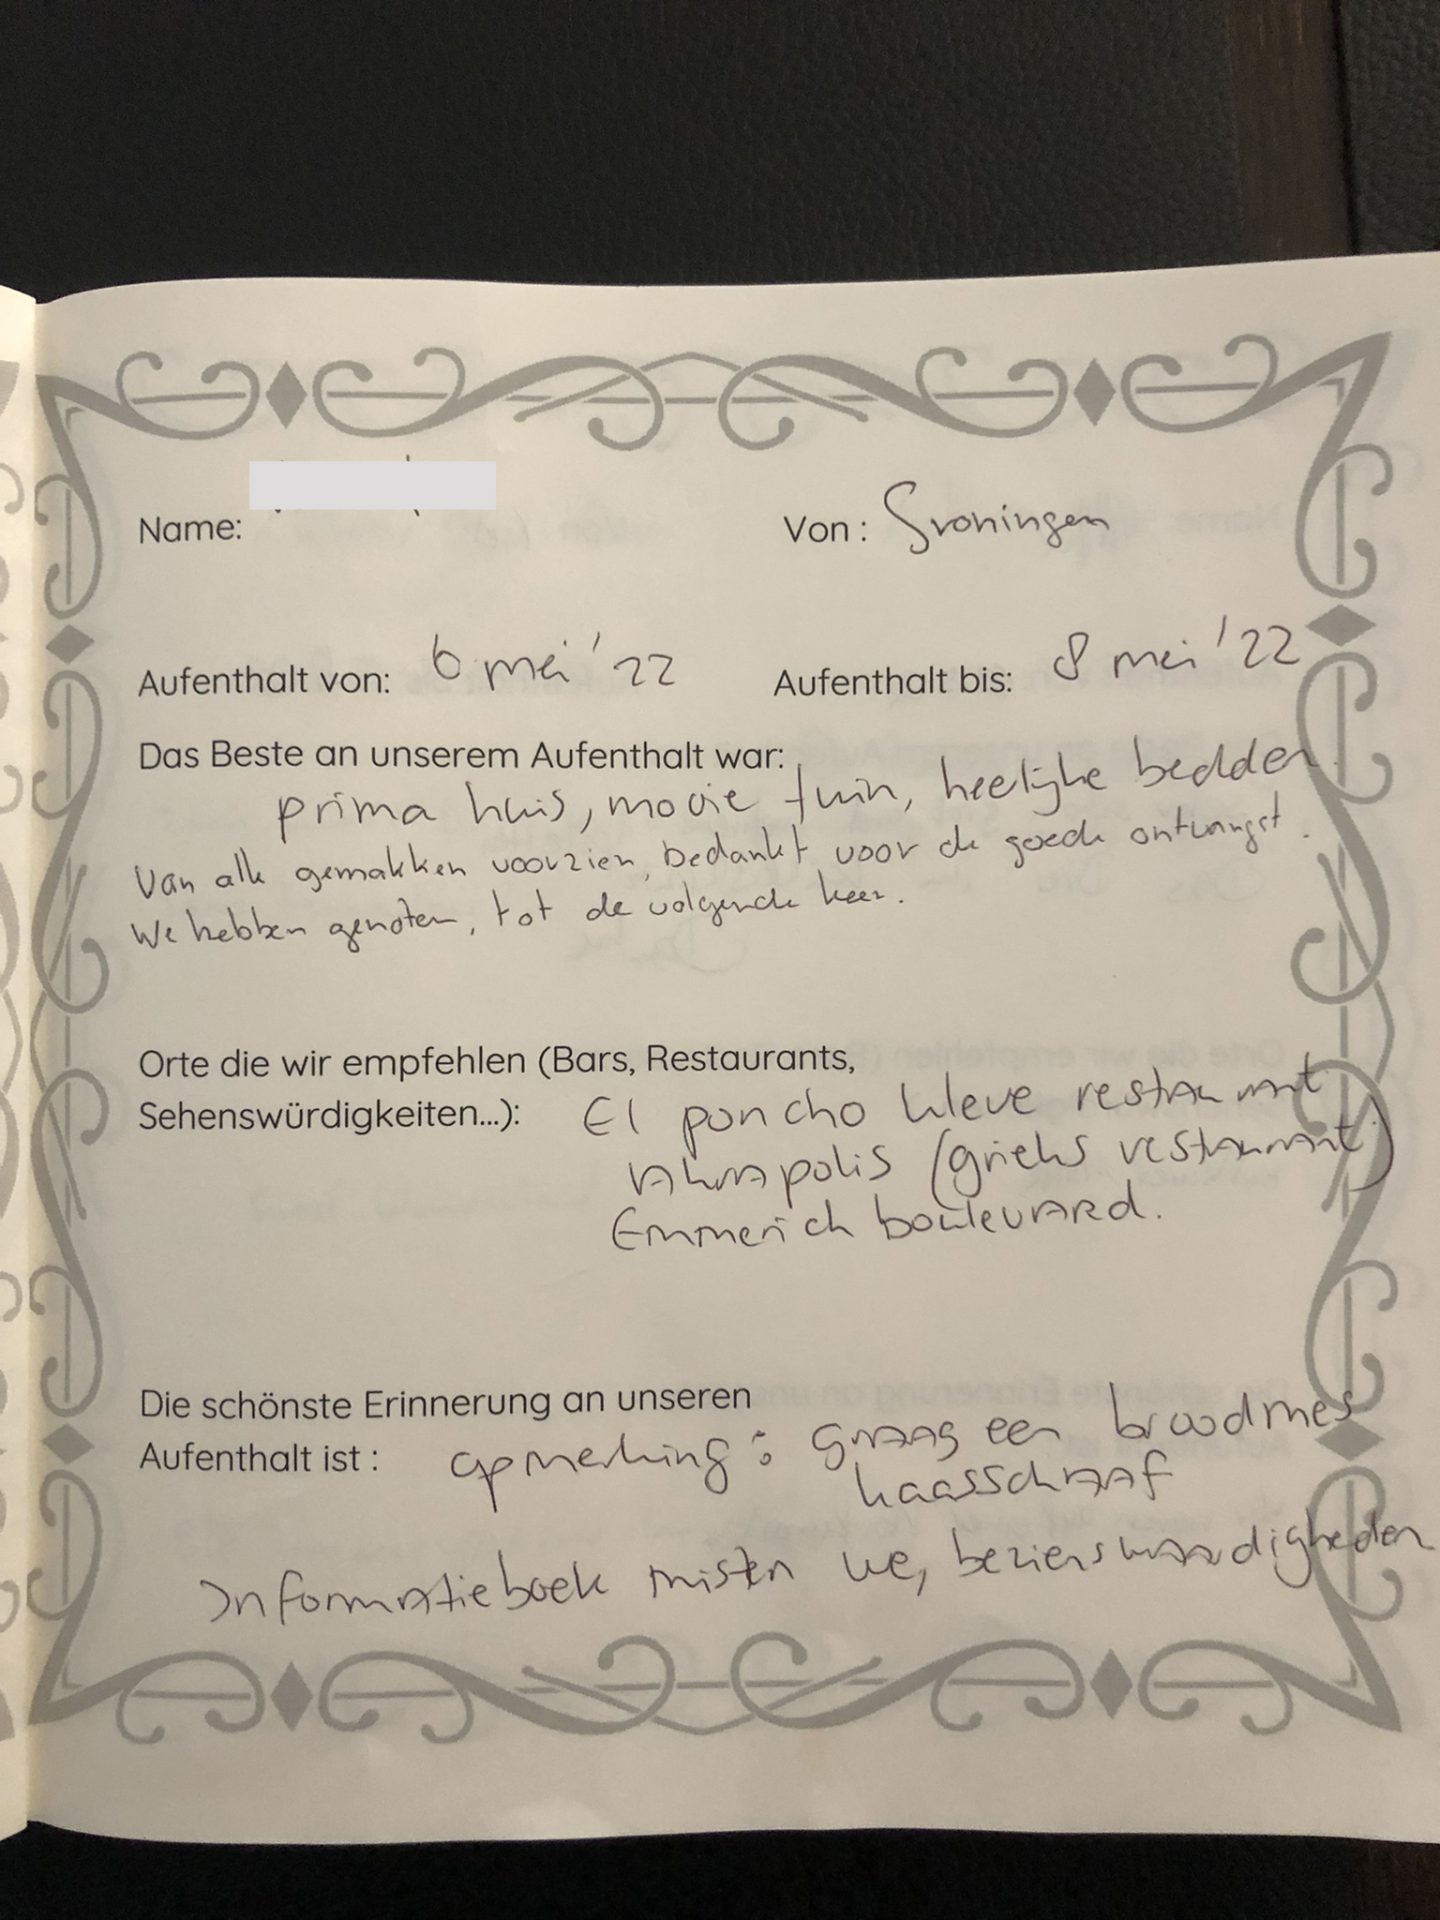 Name:
Von : Groningen
Aufenthalt von: 6 mei '22
Aufenthalt bis: 8 mei '22
Das Beste an unserem Aufenthalt war:
prima huis, mooie tuin, heelijke bedden.
Van alle gemakken voorzien, bedankt voor de goede ontvangst.
We hebben genoten, tot de volgende keer.
Orte die wir empfehlen (Bars, Restaurants,
Sehenswürdigkeiten...): El poncho kleve restaurant
Akrapolis (grieks restaurant)
Emmerich boulevard.
Die schönste Erinnerung an unseren
Aufenthalt ist : opmerking : graag een broodmes
kaasschaaf
Informatieboek misten we, bezienswaardigheden